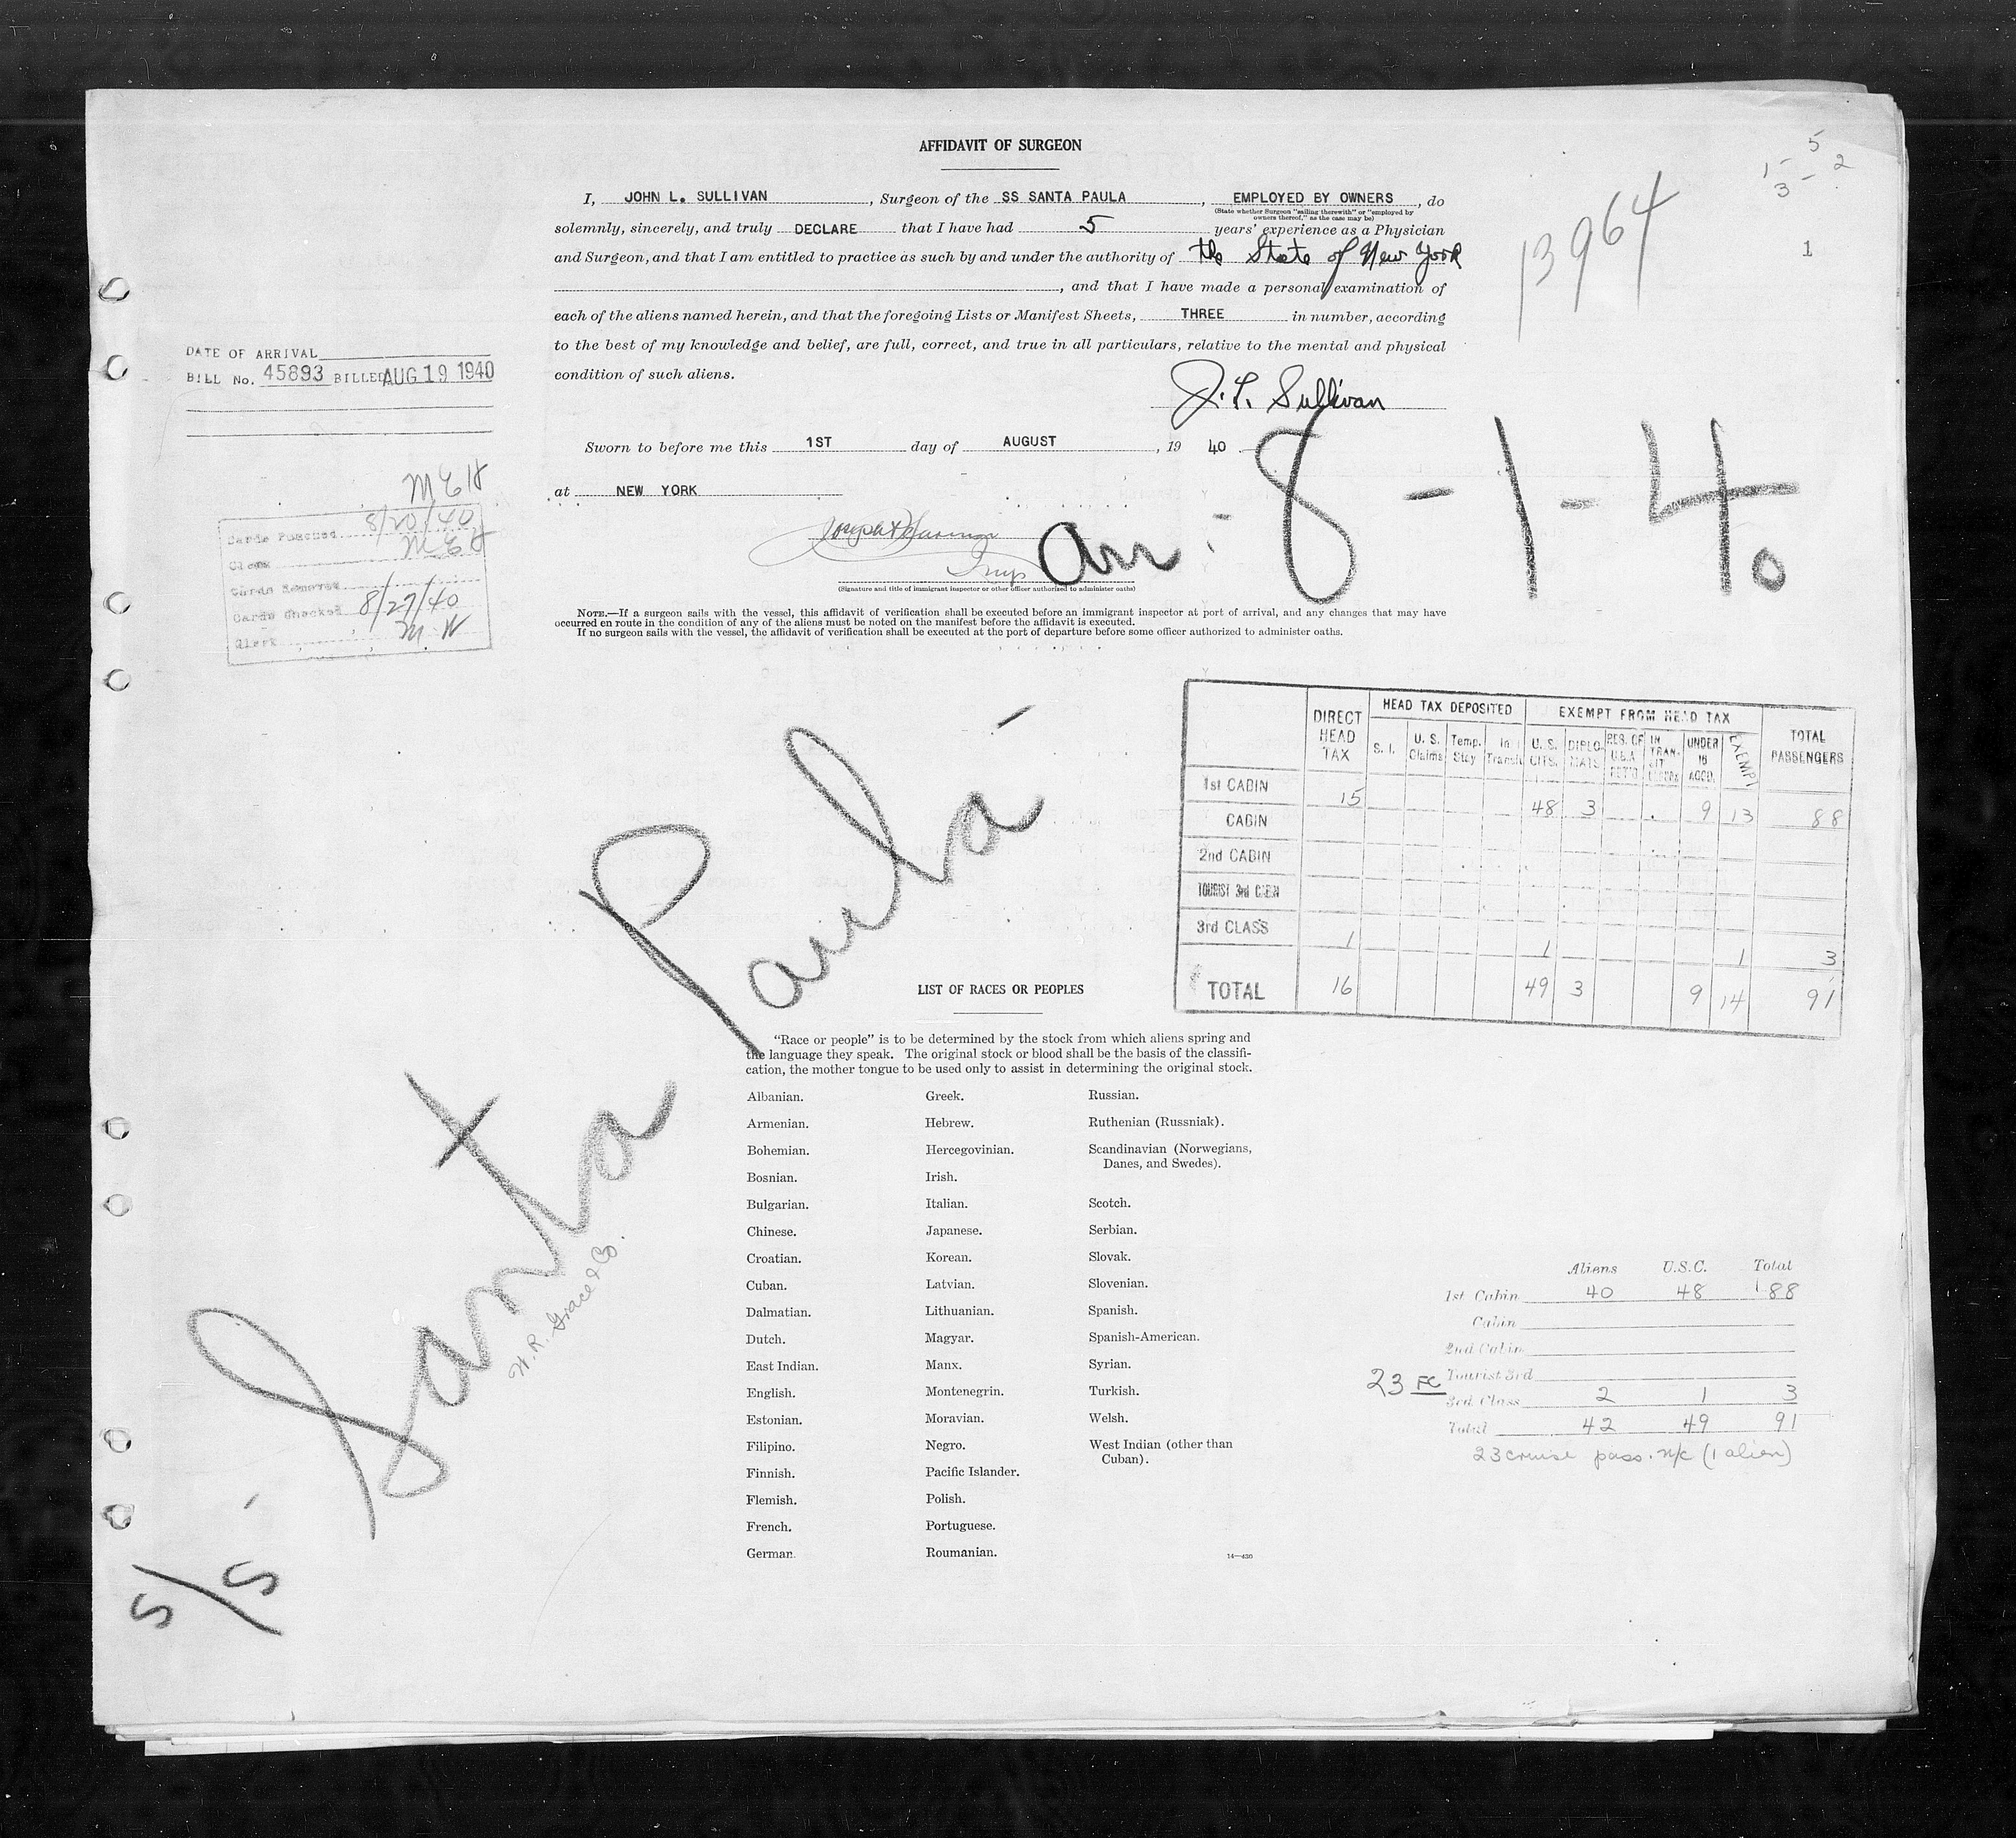 AFFIDAVIT OF SURGEON
I, JOHN L. SULLIVAN, Surgeon of the SS SANTA PAULA, EMPLOYED BY OWNERS, do
(State whether Surgeon "sailing therewith" or "employed by owners thereof," as the case may be)
solemnly, sincerely, and truly DECLARE that I have had 5 years' experience as a Physician
and Surgeon, and that I am entitled to practice as such by and under the authority of the State of New York
, and that I have made a personal examination of
each of the aliens named herein, and that the foregoing Lists or Manifest Sheets, THREE in number, according
to the best of my knowledge and belief, are full, correct, and true in all particulars, relative to the mental and physical
condition of such aliens.
J. L. Sullivan
Sworn to before me this 1ST day of AUGUST, 19 40
at NEW YORK
(Signature and title of immigrant inspector or other officer authorized to administer oaths)
NOTE.—If a surgeon sails with the vessel, this affidavit of verification shall be executed before an immigrant inspector at port of arrival, and any changes that may have
occurred en route in the condition of any of the aliens must be noted on the manifest before the affidavit is executed.
If no surgeon sails with the vessel, the affidavit of verification shall be executed at the port of departure before some officer authorized to administer oaths.
13964
5
1 - 2
3 -
1
Arr - 8 - 1 - 40
DATE OF ARRIVAL
BILL No. 45893 BILLED AUG 19 1940
MEH
Cards Punched 8/20/40
Clerk MEH
Cards Removed
Cards Checked 8/27/40
Clerk M W
S/S - Santa Paula -
W. R. Grace & Co.
DIRECT HEAD TAX
HEAD TAX DEPOSITED
EXEMPT FROM HEAD TAX
TOTAL PASSENGERS
S. I. U. S. Claims Temp. Stay In Transit U. S. CITS. DIPLOMATS RES. OF U.S.A. IN TRANSIT UNDER 16 ACCD. EXEMPT
1st CABIN 15 48 3 9 13 88
CABIN
2nd CABIN
TOURIST 3rd CABIN
3rd CLASS 1 1 1 3
TOTAL 16 49 3 9 14 91
LIST OF RACES OR PEOPLES
"Race or people" is to be determined by the stock from which aliens spring and
the language they speak. The original stock or blood shall be the basis of the classifi-
cation, the mother tongue to be used only to assist in determining the original stock.
Albanian.
Armenian.
Bohemian.
Bosnian.
Bulgarian.
Chinese.
Croatian.
Cuban.
Dalmatian.
Dutch.
East Indian.
English.
Estonian.
Filipino.
Finnish.
Flemish.
French.
German.
Greek.
Hebrew.
Hercegovinian.
Irish.
Italian.
Japanese.
Korean.
Latvian.
Lithuanian.
Magyar.
Manx.
Montenegrin.
Moravian.
Negro.
Pacific Islander.
Polish.
Portuguese.
Roumanian.
Russian.
Ruthenian (Russniak).
Scandinavian (Norwegians,
Danes, and Swedes).
Scotch.
Serbian.
Slovak.
Slovenian.
Spanish.
Spanish-American.
Syrian.
Turkish.
Welsh.
West Indian (other than
Cuban).
14—430
Aliens U.S.C. Total
1st Cabin 40 48 88
Cabin
2nd Cabin
Tourist 3rd
23 FC
3rd Class 2 1 3
Total 42 49 91
23 cruise pass. n/c (1 alien)